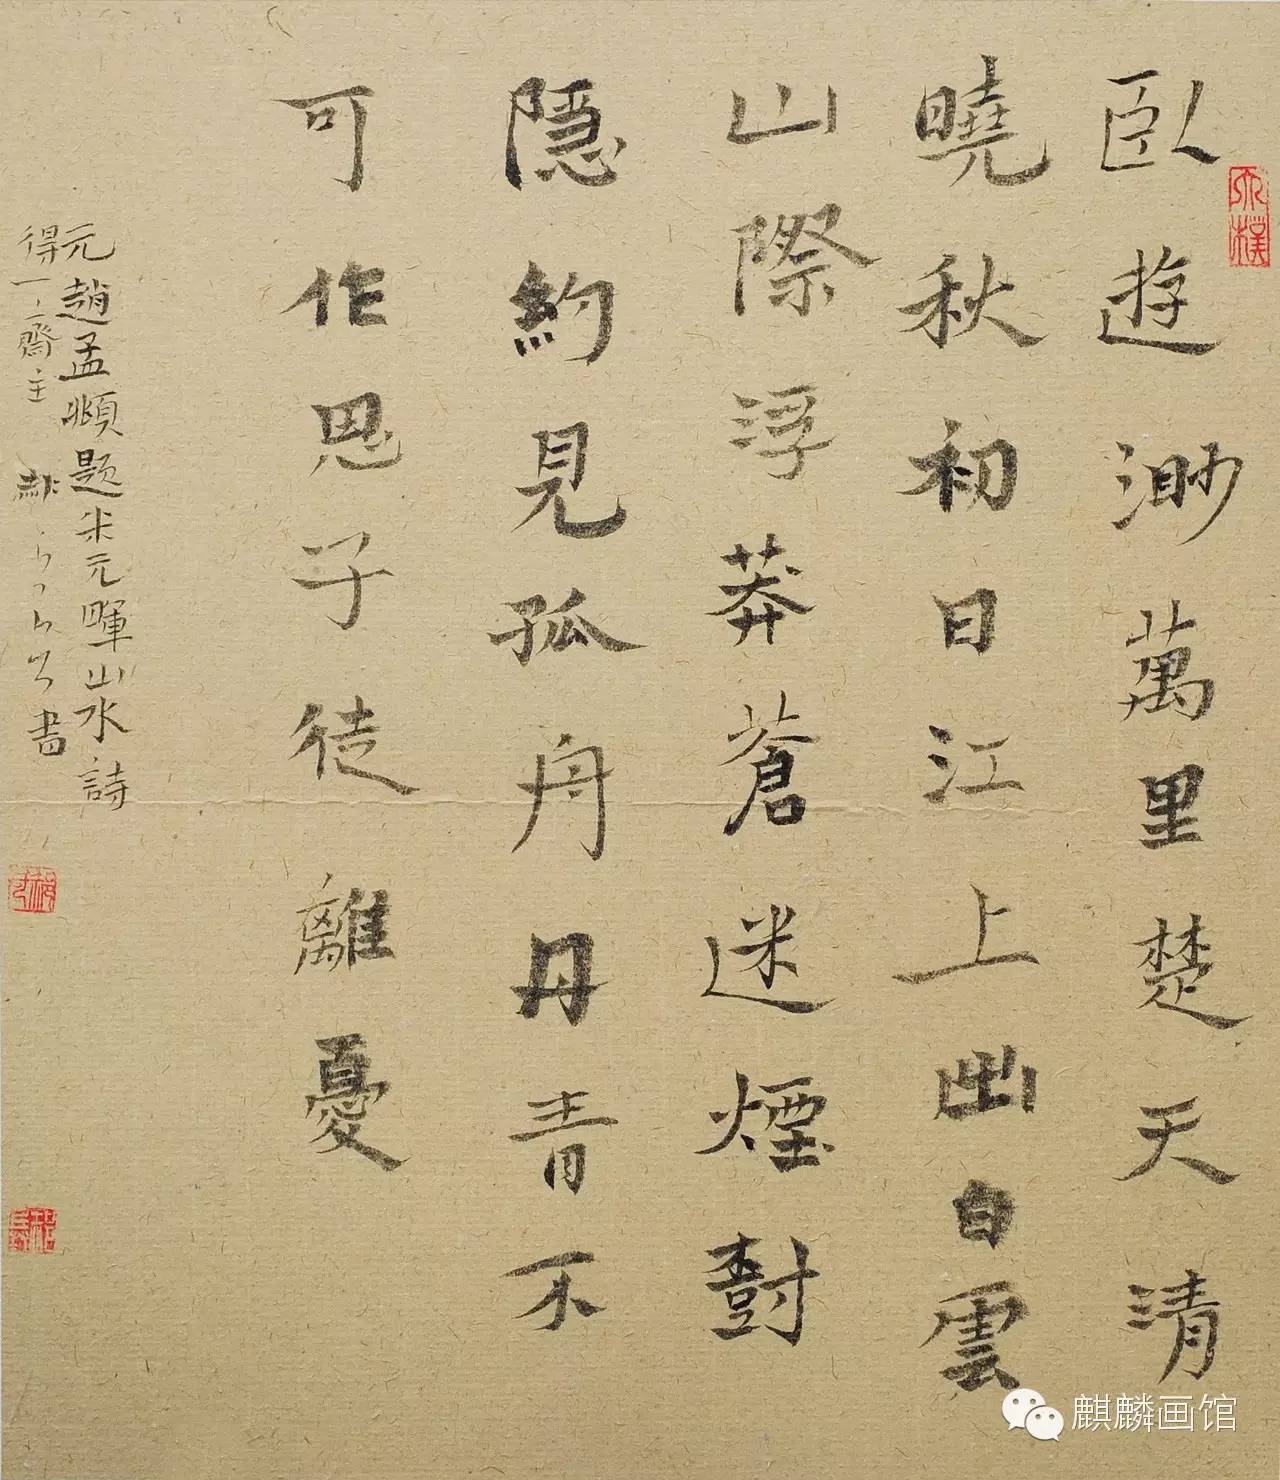 臥遊渺萬里楚天清
曉秋初日江上出白雲
山際浮莽蒼迷煙樹
隱約見孤舟丹青不
可作思子徒離憂
元趙孟頫題米元暉山水詩
得一齋主
書
麒麟画馆